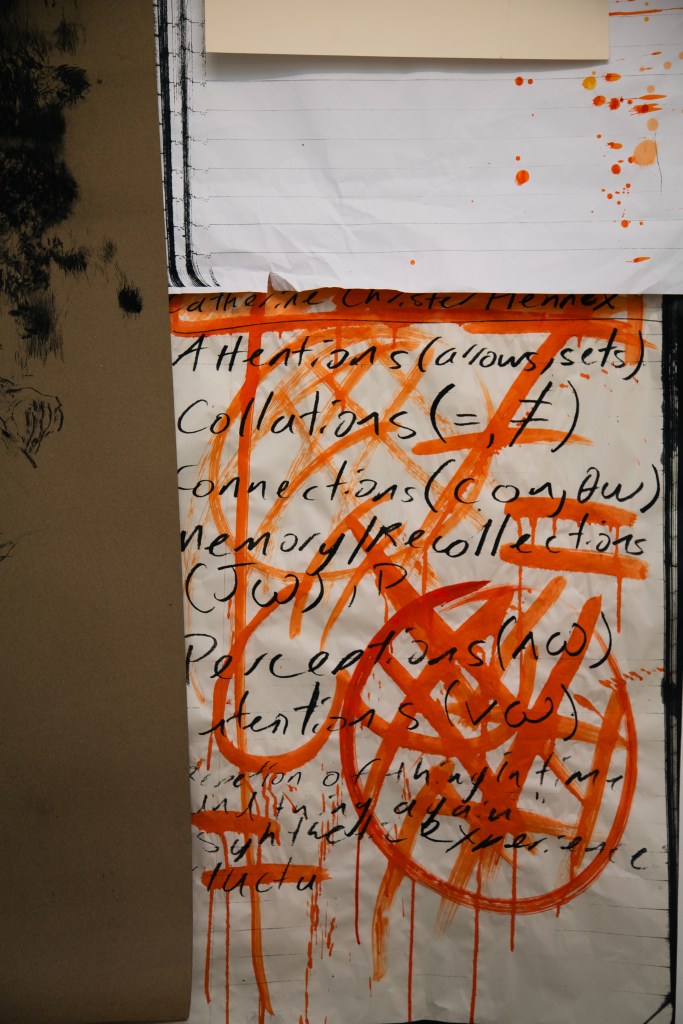 Catherine Christer Hennex
Attentions (arrows, sets)
Collations (=, ≠)
Connections (Con, θω)
Memory/Recollections
(Jω), P
Perceptions (∧ω)
ntentions (∨ω)
of thing in time
and thing again"
Syntactic Experience
luctu